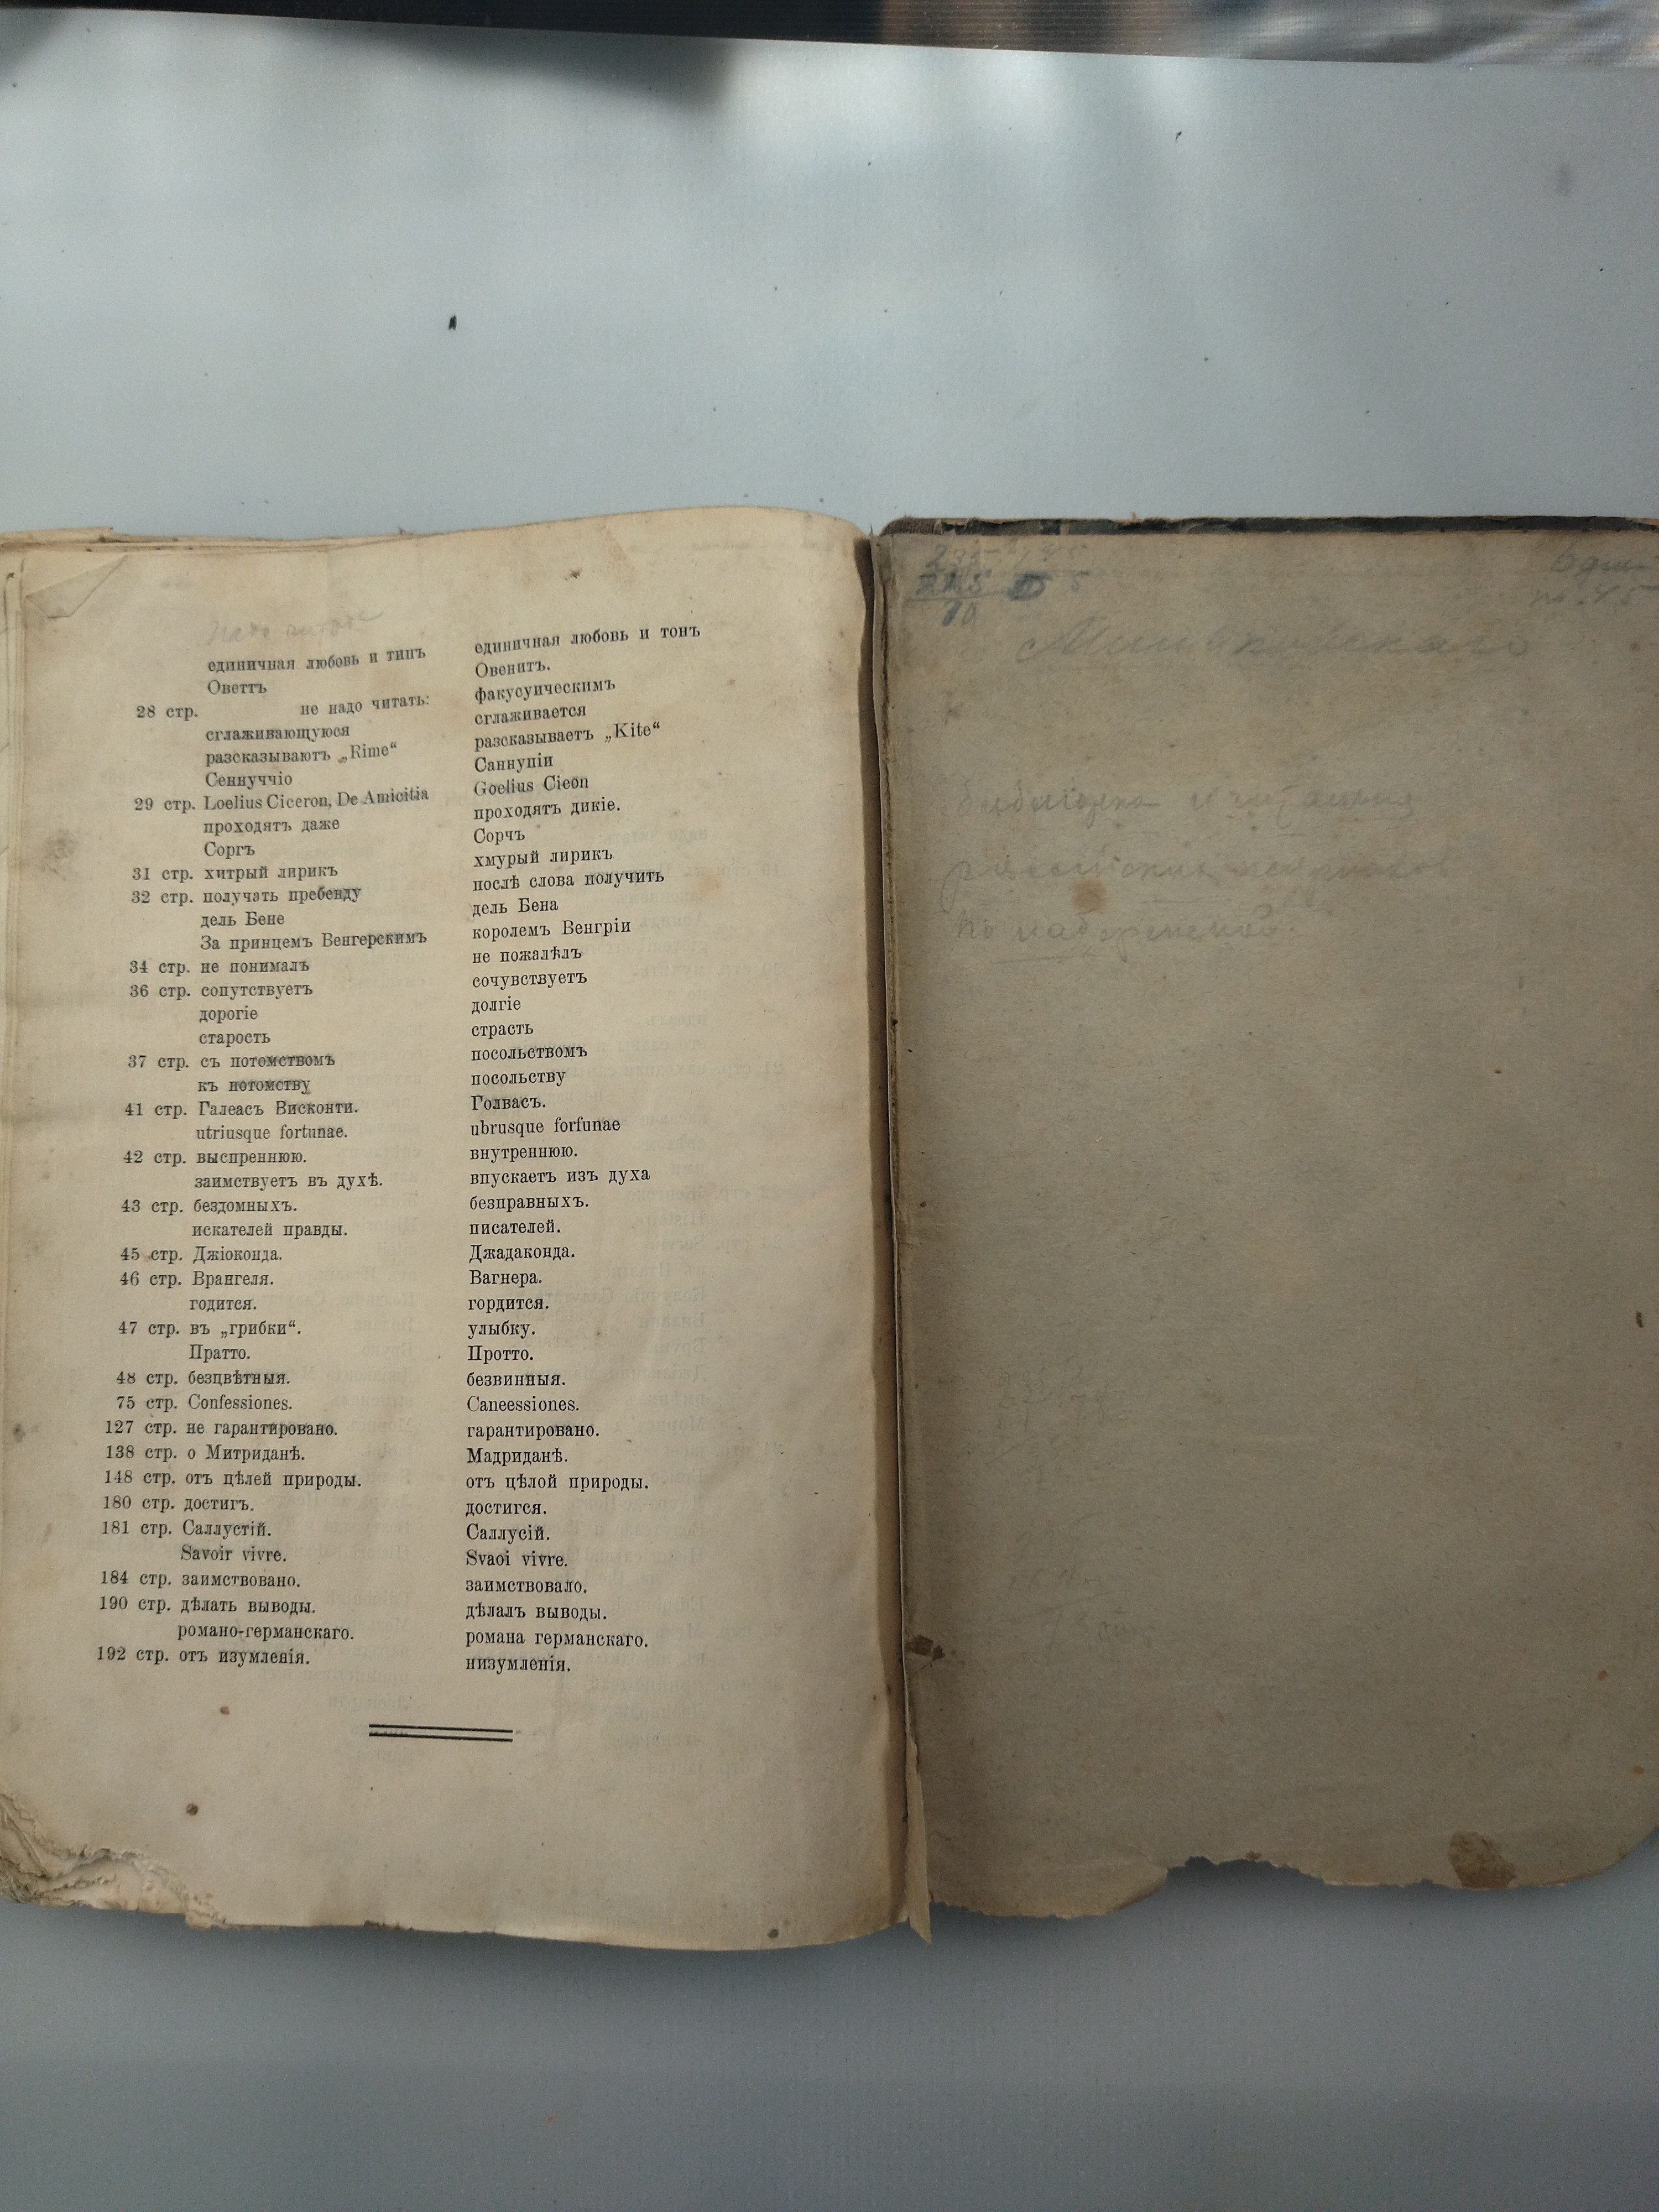 Надо читать
единичная любовь и типъ единичная любовь и тонъ
Оветтъ Овенитъ.
28 стр. не надо читать: факусуическимъ
сглаживающуюся сглаживается
разсказываютъ „Rime“ разсказываетъ „Kite“
Сеннуччіо Саннупіи
29 стр. Loelius Ciceron, De Amicitia Goelius Cieon
проходятъ даже проходятъ дикіе.
Соргъ Сорчъ
31 стр. хитрый лирикъ хмурый лирикъ
32 стр. получать пребенду послѣ слова получить
дель Бене дель Бена
За принцемъ Венгерскимъ королемъ Венгріи
34 стр. не понималъ не пожалѣлъ
36 стр. сопутствуетъ сочувствуетъ
дорогіе долгіе
старость страсть
37 стр. съ потомствомъ посольствомъ
къ потомству посольству
41 стр. Галеасъ Висконти. Голвасъ.
utriusque fortunae. ubrusque forfunae
42 стр. выспреннюю. внутреннюю.
заимствуетъ въ духѣ. впускаетъ изъ духа
43 стр. бездомныхъ. безправныхъ.
искателей правды. писателей.
45 стр. Джіоконда. Джадаконда.
46 стр. Врангеля. Вагнера.
годится. гордится.
47 стр. въ „грибки“. улыбку.
Пратто. Протто.
48 стр. безцвѣтныя. безвинныя.
75 стр. Confessiones. Caneessiones.
127 стр. не гарантировано. гарантировано.
138 стр. о Митриданѣ. Мадриданѣ.
148 стр. отъ цѣлей природы. отъ цѣлой природы.
180 стр. достигъ. достигся.
181 стр. Саллустій. Саллусій.
Savoir vivre. Svaoi vivre.
184 стр. заимствовано. заимствовало.
190 стр. дѣлать выводы. дѣлалъ выводы.
романо-германскаго. романа германскаго.
192 стр. отъ изумленія. низумленія.
225
10
по набережной.